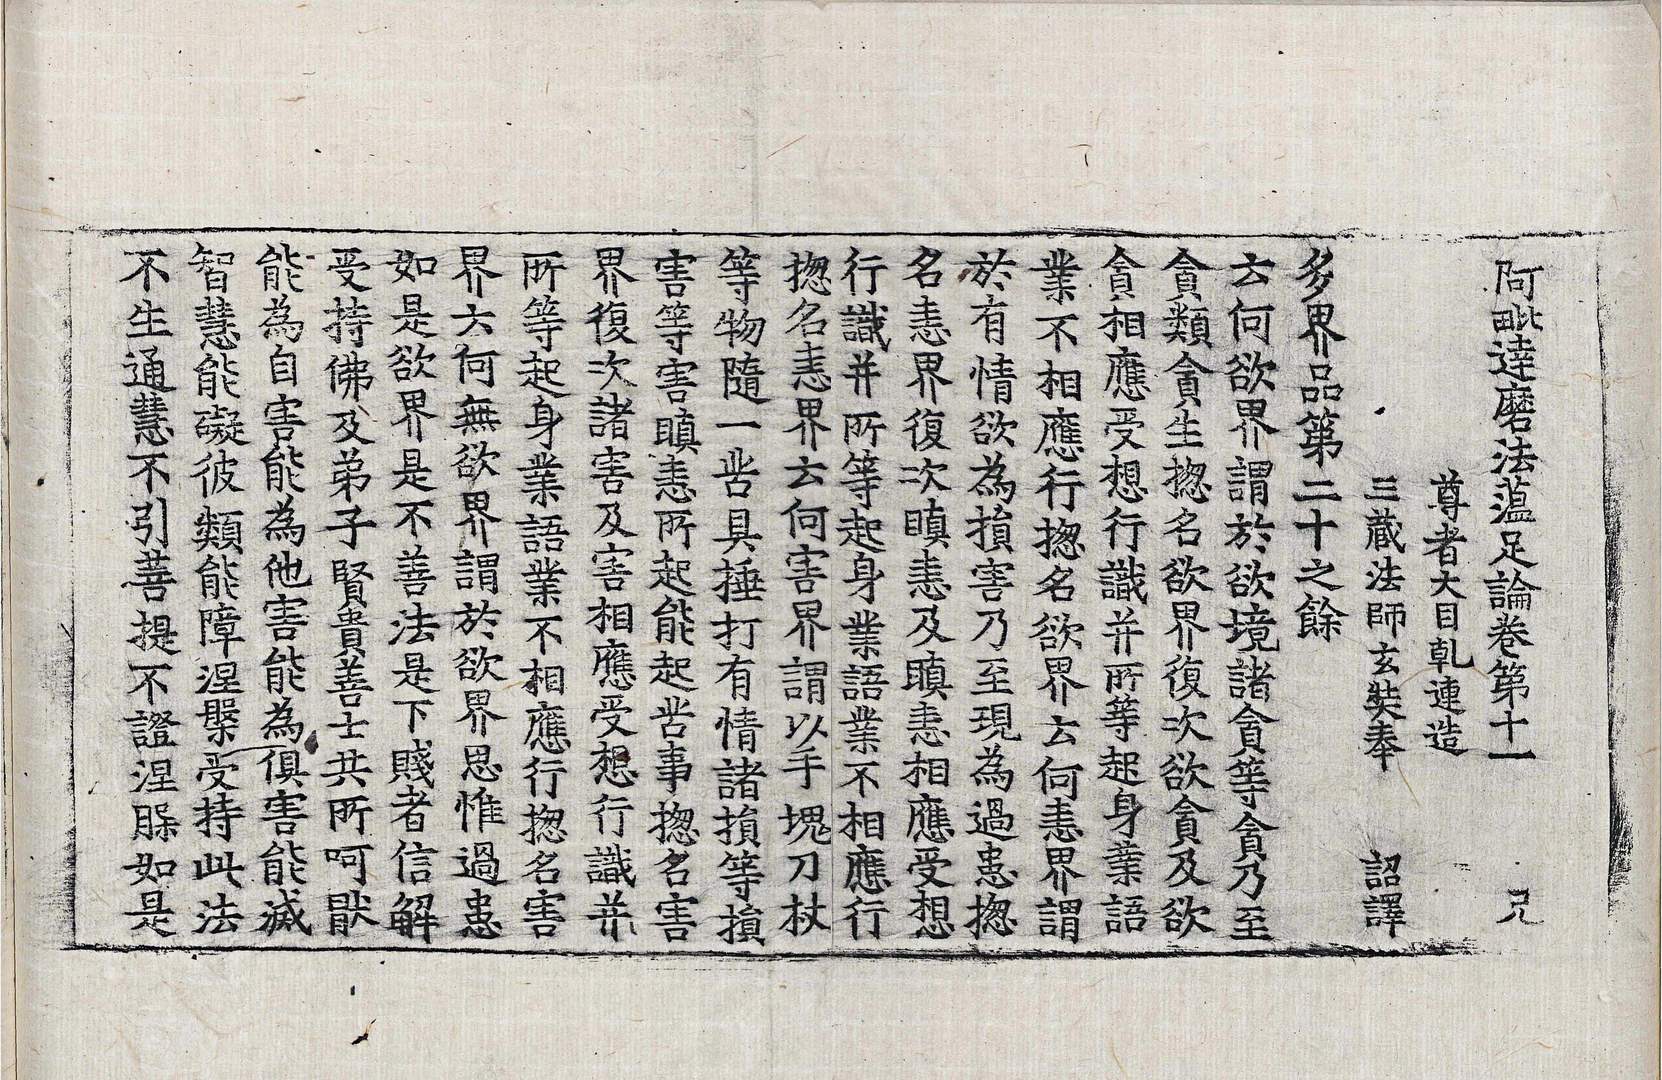 阿毗達磨法蘊足論卷第十一 兄
尊者大目乹連造
三藏法師玄奘奉 詔譯
多界品第二十之餘
云何欲界謂於欲境諸貪等貪乃至
貪類貪生揔名欲界復次欲貪及欲
貪相應受想行識并所等起身業語
業不相應行揔名欲界云何恚界謂
於有情欲為損害乃至現為過患揔
名恚界復次瞋恚及瞋恚相應受想
行識并所等起身業語業不相應行
揔名恚界云何害界謂以手塊刀杖
等物隨一苦具捶打有情諸損等損
害等害瞋恚所起能起苦事揔名害
界復次諸害及害相應受想行識并
所等起身業語業不相應行揔名害
界云何無欲界謂於欲界思惟過患
如是欲界是不善法是下賤者信解
受持佛及弟子賢貴善士共所呵猒
能為自害能為他害能為俱害能滅
智慧能礙彼類能障涅槃受持此法
不生通慧不引菩提不證涅槃如是